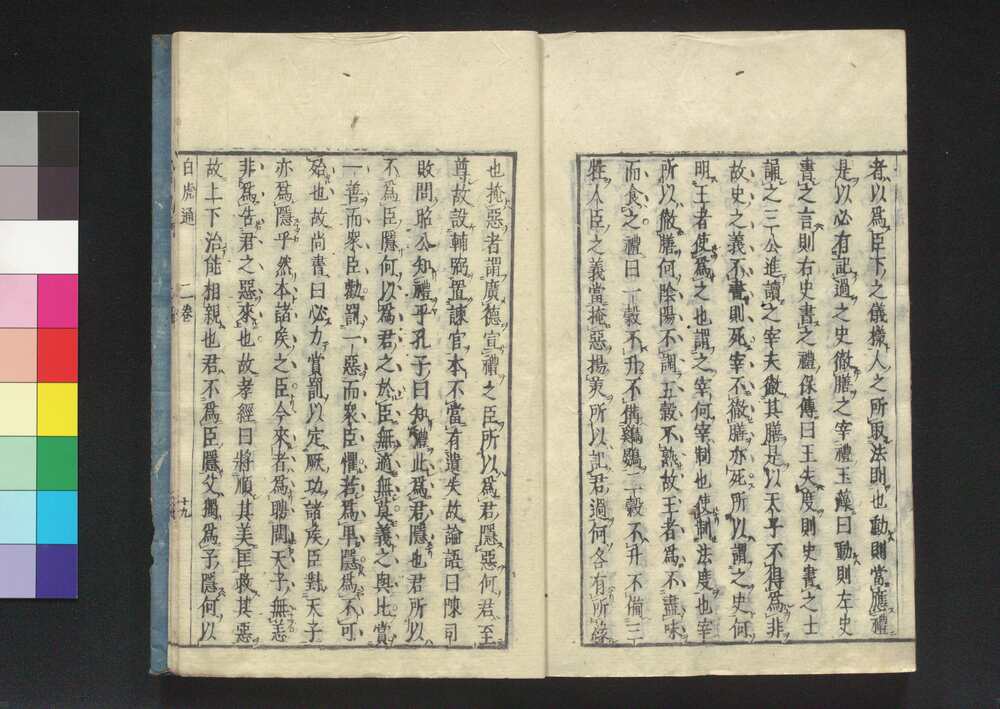 者以爲臣下之儀樣人之所取法則也動則當應禮
是以必有記過之史徹膳之宰禮玉藻曰動則左史
書之言則右史書之禮保傅曰王失度則史書之士
誦之三公進讀之宰夫徹其膳是以天子不得爲非
故史之義不書則死宰不徹膳亦死所以謂之史何
明王者使爲之也謂之宰何宰制也使制法度也宰
所以徹膳何陰陽不調五穀不熟故王者爲不盡味
而食之禮曰一穀不升不備鶏鷃二穀不升不備三
牲人臣之義當掩惡揚美所以記君過何各有所緣
也掩惡者謂廣德宣禮之臣所以爲君隱惡何君至
尊故設輔弼置諫官本不當有遺失故論語曰陳司
敗問昭公知禮乎孔子曰知禮此爲君隱也君所以
不爲臣隱何以爲君之於臣無適無莫義之與比賞
一善而衆臣勸罰一惡而衆臣懼若爲卑隱爲不可
殆也故尚書曰必力賞罰以定厥功諸矦臣對天子
亦爲隱乎然本諸矦之臣今來者爲聘問天子無恙
非爲告君之惡來也故孝經曰將順其美匡救其惡
故上下治能相親也君不爲臣隱父獨爲子隱何以
白虎通　二卷　十九